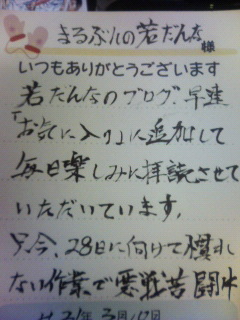 まるぶんの若だんな様
いつもありがとうございます
若だんなのブログ、早速
「お気に入り」に追加して
毎日楽しみに拝読させて
いただいています。
只今、28日に向けて慣れ
ない作業で悪戦苦闘中